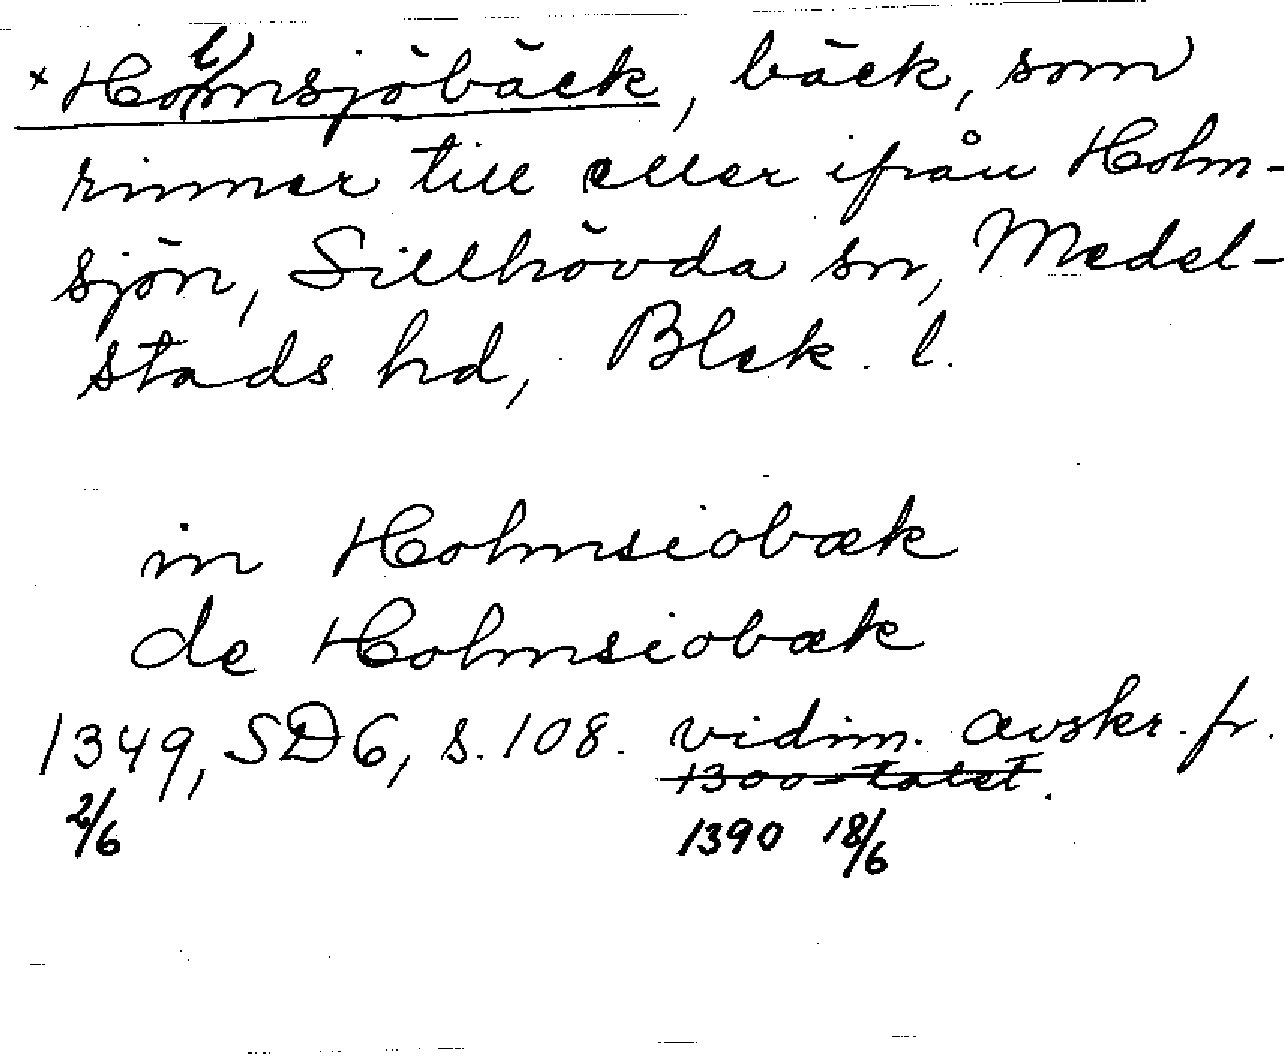 *Holmsjöbäck, bäck, som
rinner till eller ifrån Holm-
sjön, Sillhövda sn, Medel-
stads hd, Blek. l.
in Holmsiobæk
de Holmsiobæk
1349, SD6, s. 108. vidim. avskr. fr.
2/6 1300-talet.
1390 18/6